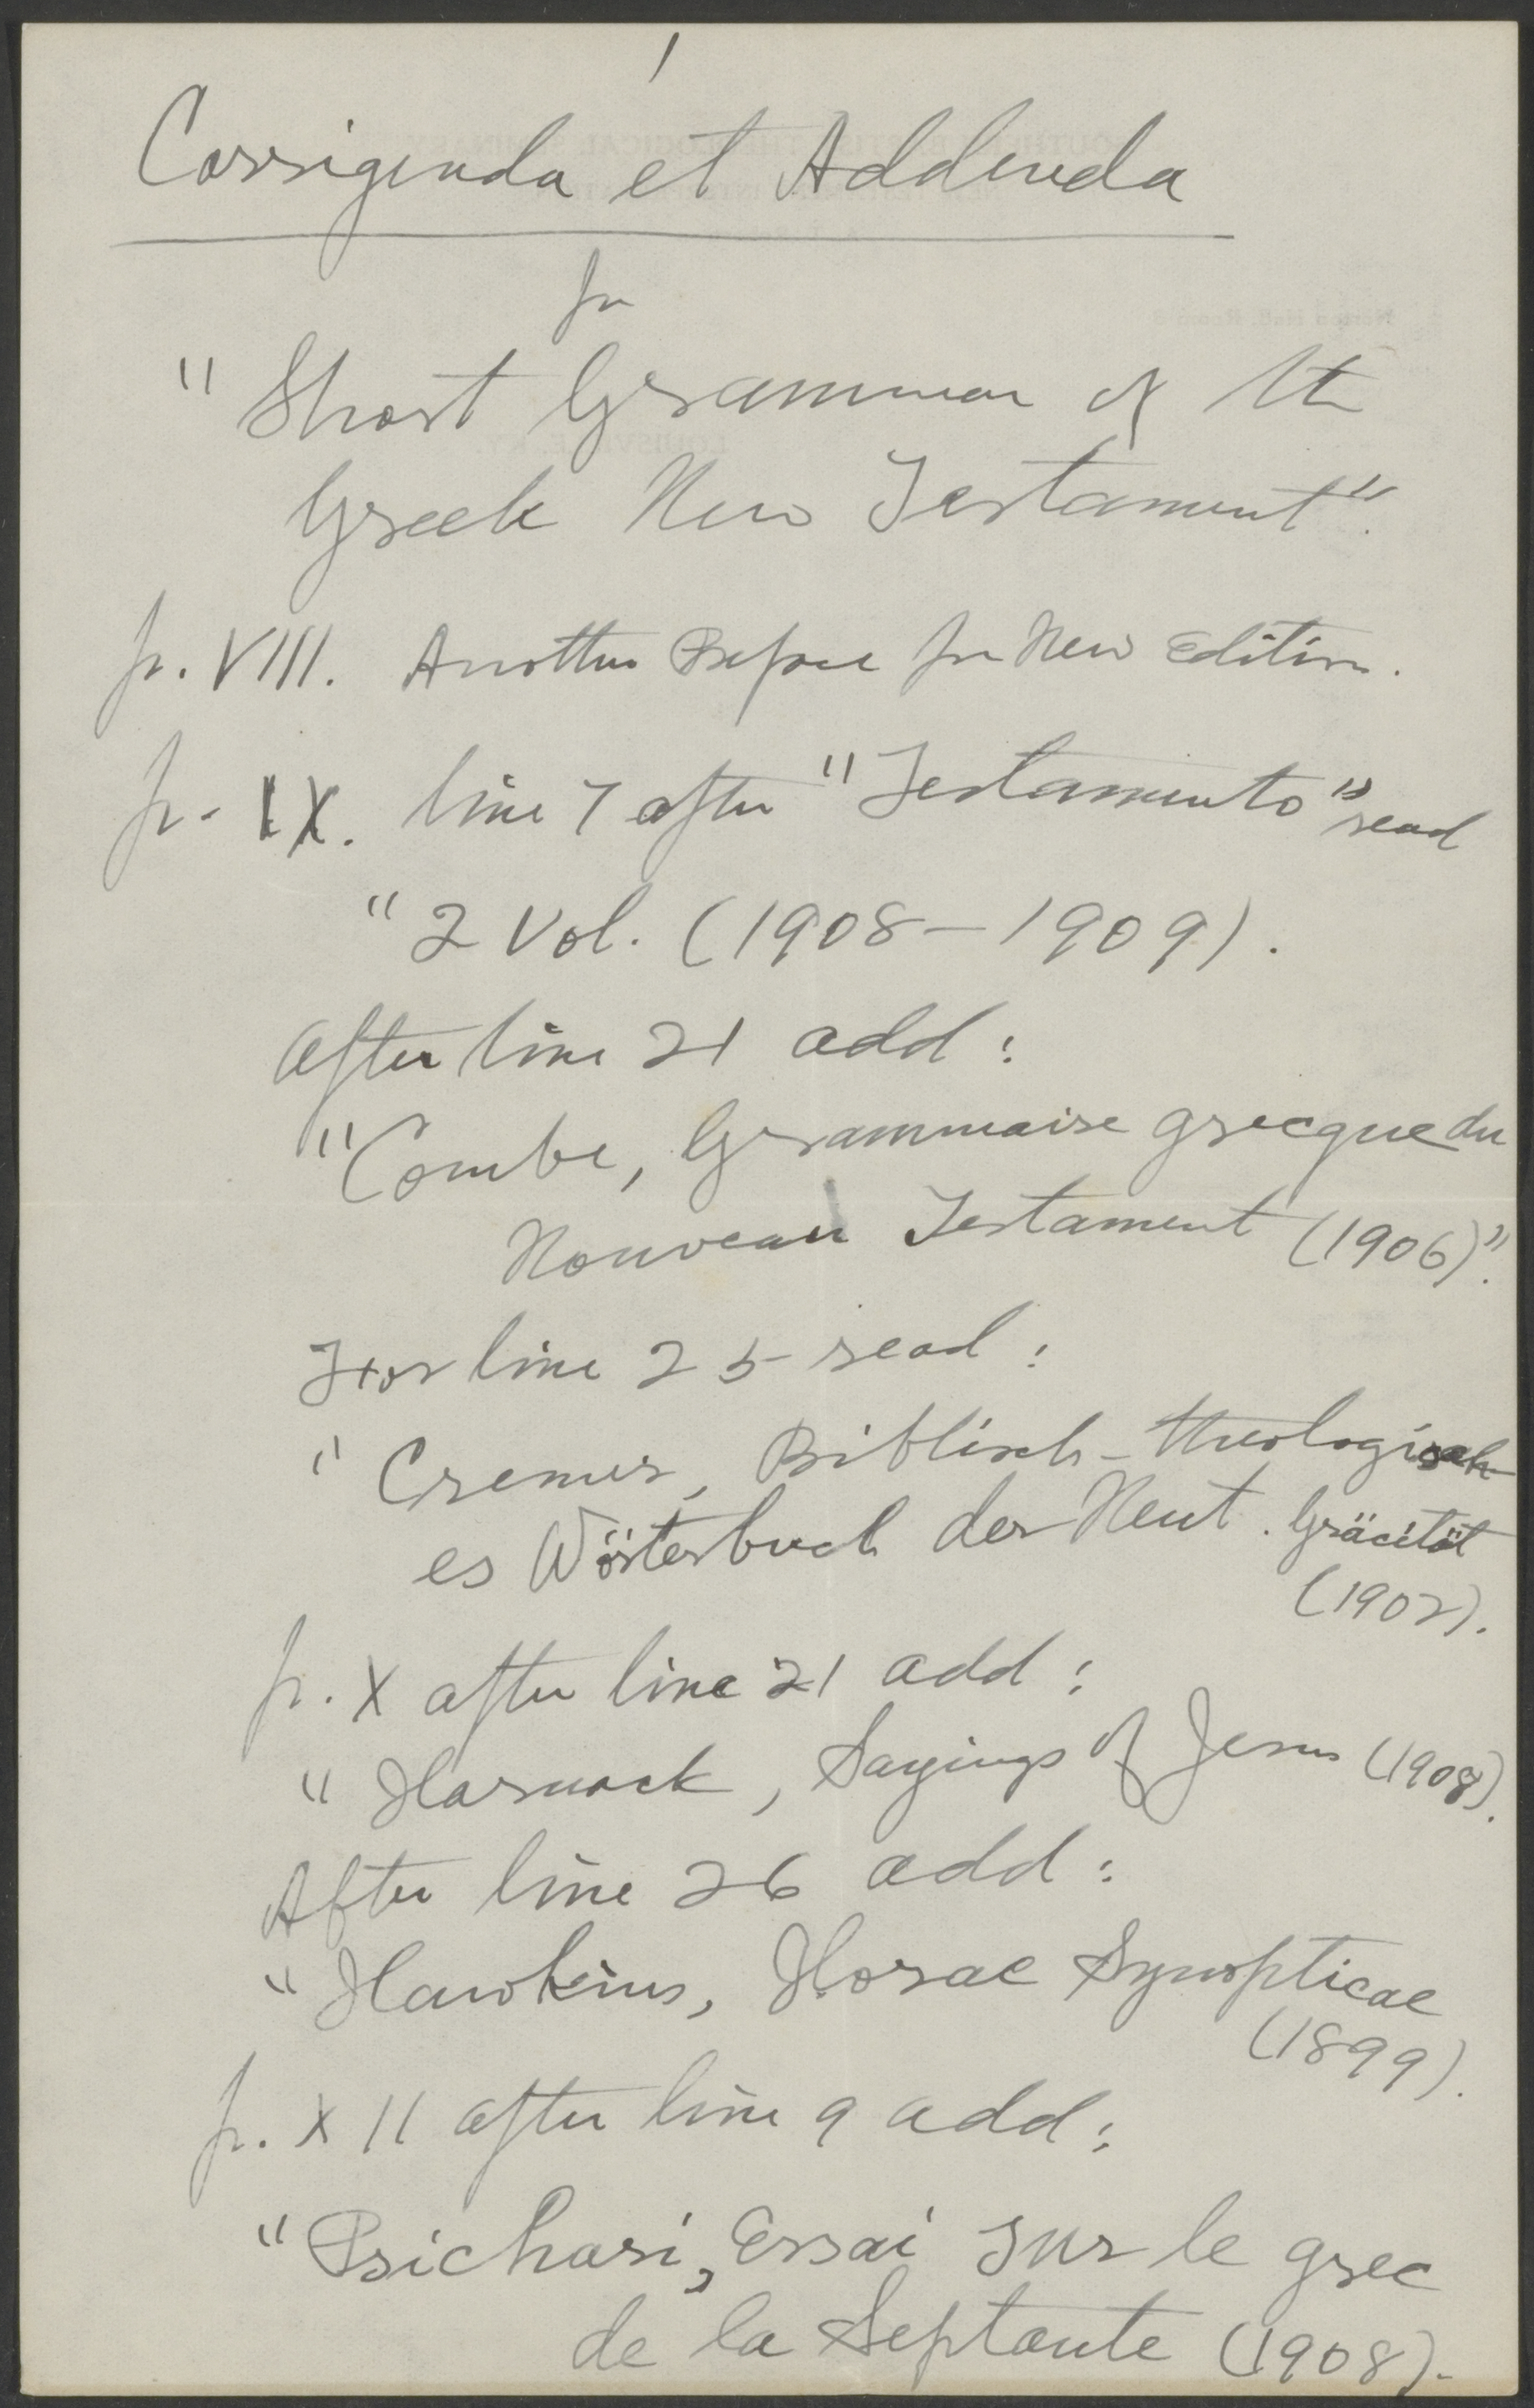 1
Corrigenda et Addenda
for
"Short Grammar of the
Greek New Testament".
p. VIII. Another Preface for New Edition.
p. IX. line 7 after "Testamento" read
"2 Vol. (1908-1909).
After line 21 add:
"Combe, Grammaire grecque du
Nouveau Testament (1906)".
For line 25 read:
" Cremer, Biblisch-theologisch-
es Wörterbuch der Neut. Gräcität
(1902).
p. X after line 21 add:
" Harnack, Sayings of Jesus (1908).
After line 26 add:
" Hawkins, Horae Synopticae
(1899).
p. XII after line 9 add:
"Psichari, Essai sur le grec
de la Septante (1908).